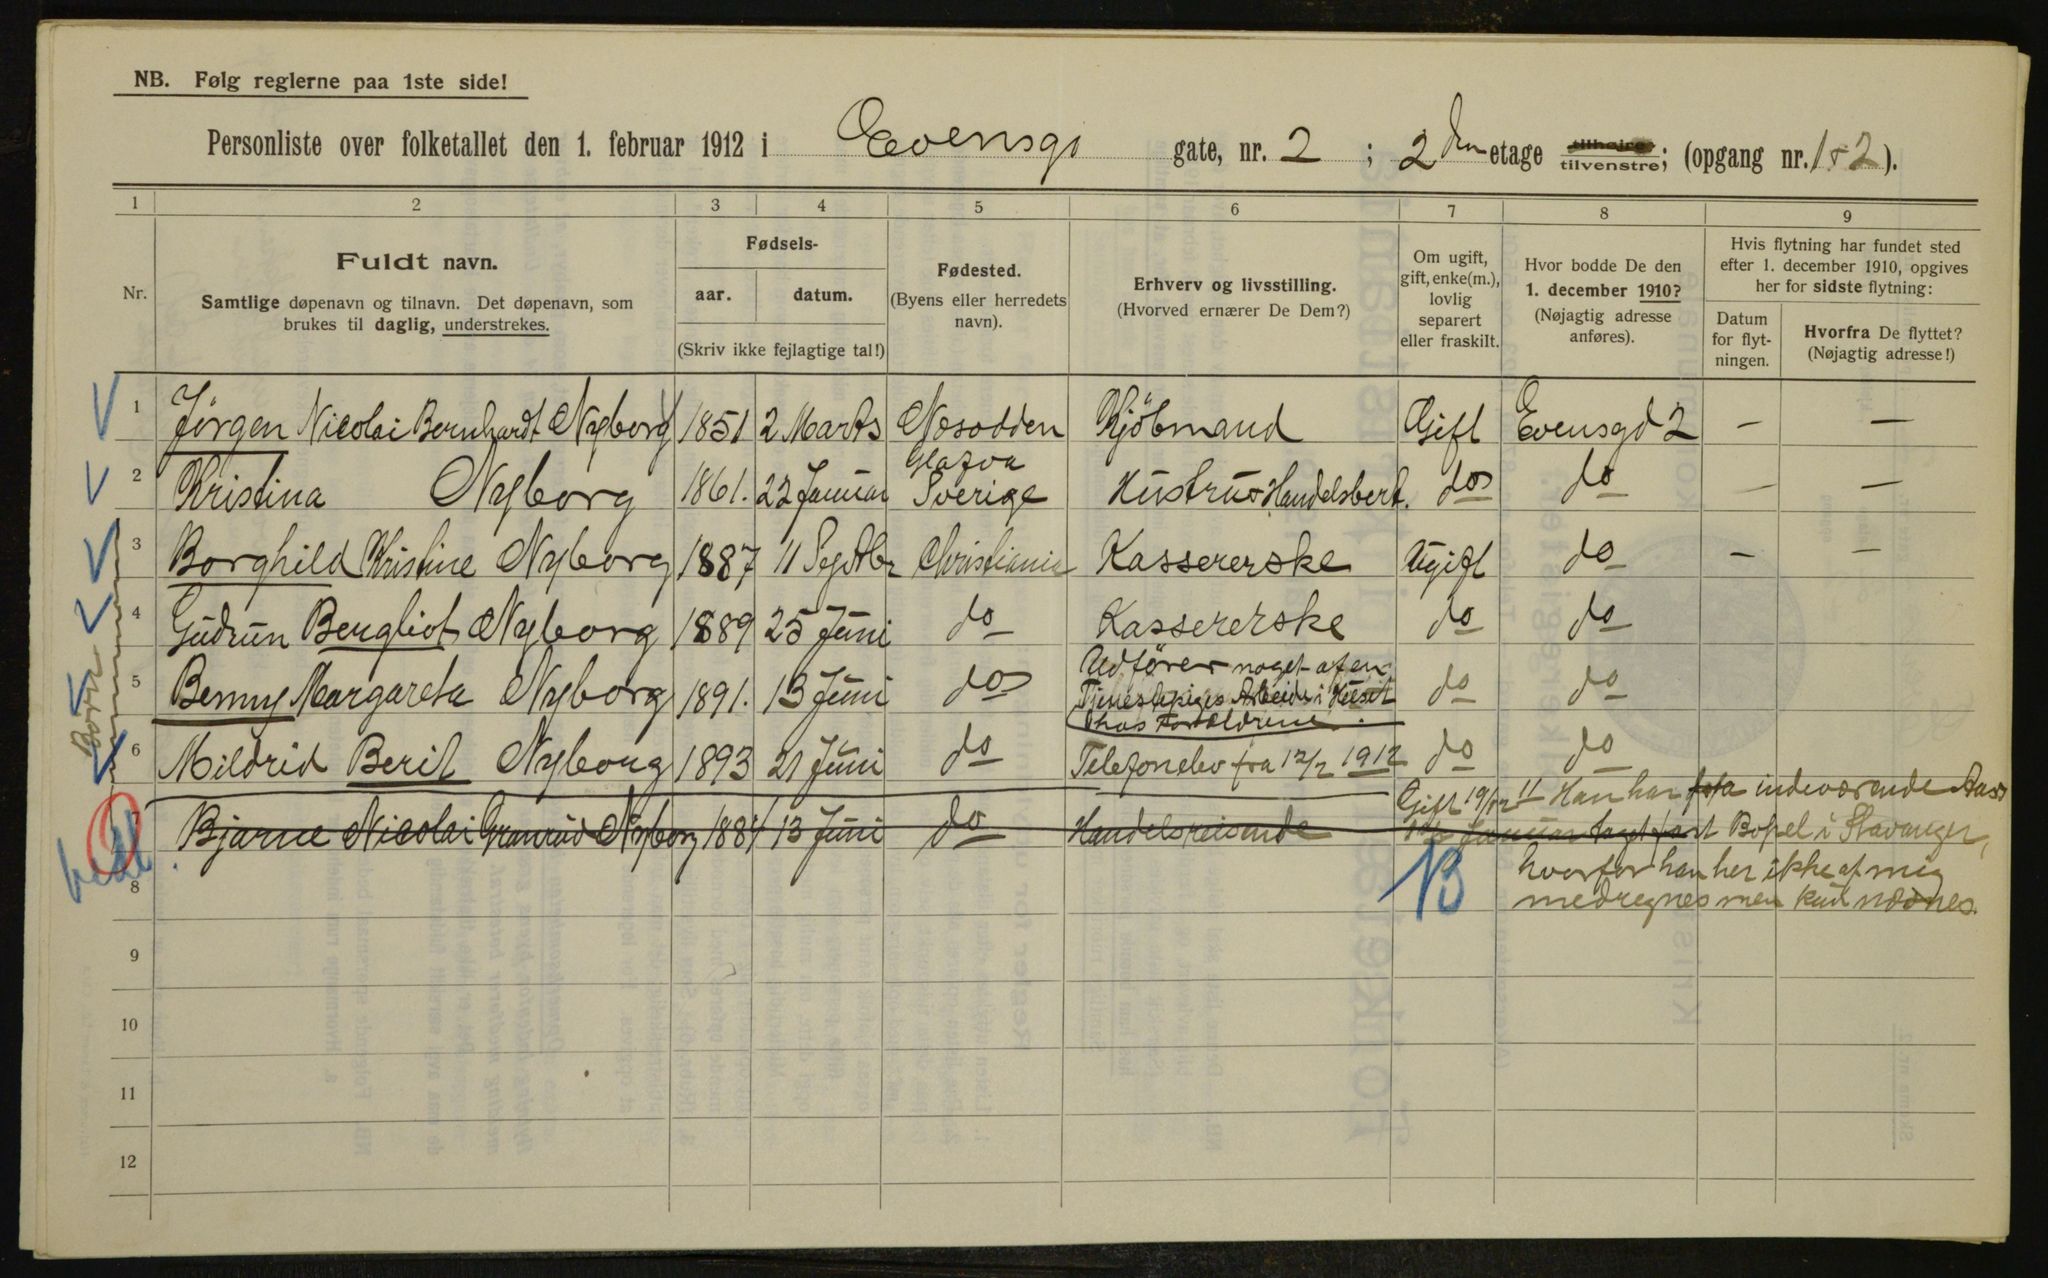 NB. Følg reglerne paa 1ste side!
Personliste over folketallet den 1. februar 1912 i Evensgd gate, nr. 2 ; 2den etage tilhøire tilvenstre; (opgang nr. 1 & 2 ).
1 2 3 4 5 6 7 8 9
Nr.
Fuldt navn.
Samtlige døpenavn og tilnavn. Det døpenavn, som
brukes til daglig, understrekes.
Fødsels-
aar. datum.
(Skriv ikke fejlagtige tal!)
Fødested.
(Byens eller herredets
navn).
Erhverv og livsstilling.
(Hvorved ernærer De Dem?)
Om ugift,
gift, enke(m.),
lovlig
separert
eller fraskilt.
Hvor bodde De den
1. december 1910?
(Nøjagtig adresse
anføres).
Hvis flytning har fundet sted
efter 1. december 1910, opgives
her for sidste flytning:
Datum
for flyt-
ningen.
Hvorfra De flyttet?
(Nøjagtig adresse!)
1 Jørgen Nicolai Bernhardt Nyborg 1851 2 Marts Nesodden Kjöbmand Gift Evensgd 2 — —
2 Kristina Nyborg 1861. 22 Januar Glafva Sverige Hustru & Handelsbest. do do — —
3 Borghild Kristine Nyborg 1887 11 Septbr Christiania Kassererske Ugift do — —
4 Gudrun Bergliot Nyborg 1889 25 Juni do Kassererske do do
5 Benny Margareta Nyborg 1891. 13 Juni do Udfører noget af en
Tjenestepiges Arbeide i Huset
hos Forældrene. do do
Börn
6 Mildrid Berit Nyborg 1893 21 Juni do Telefonelev fra 12/2 1912 do do
7 Bjarne Nicolai Granrud Nyborg 1884 13 Juni do Handelsreisende Gift 19/12 11 Han har fra indeværende Aars
Januar taget fast Bopel i Stavanger,
8 hvorfor han her ikke af mig
medregnes men kun nævnes.
NB
9
10
11
12